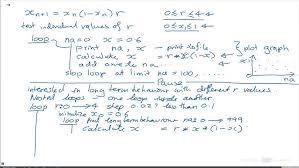 x_{n+1} = x_n(1-x_n) r 0≤r≤4
test individual values of r 0≤x≤1
loop na=0 x=0.6
print na, x - print to file } plot graph
calculate x = r*x*(1-x)
add one to na
stop loop at limit na=100,
Pause
x
na
interested in long term behaviour with different r values.
Nested loops - one loop inside another.
loop r=0 → 4 step 0.02? less than 0.1
initialise x_0 = 0.6
loop find long term behaviour na=0 → 999
calculate x = r*x*(1-x)